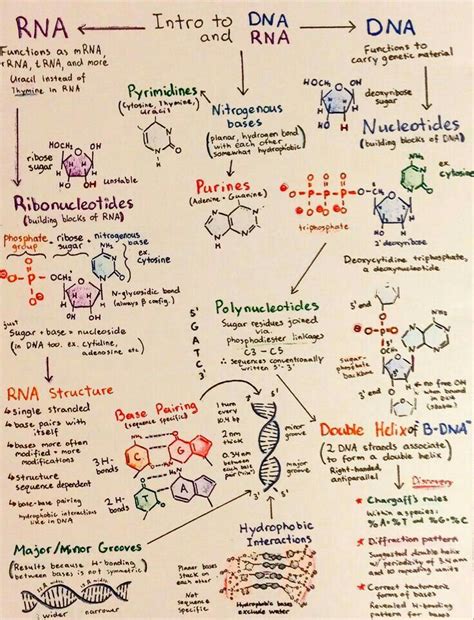 Intro to DNA
and RNA
RNA
Functions as mRNA,
rRNA, tRNA, and more
Uracil instead of
Thymine in RNA
ribose
sugar
HOCH₂
OH
HO
OH
Unstable
Ribonucleotides
(building blocks of RNA)
phosphate
group
+ ribose
sugar
+ nitrogenous
base
ex.
cytosine
NH₂
OCH₂
N-glycosidic bond
(always β config.)
just
Sugar + base = nucleoside
(in DNA too. ex. cytidine,
adenosine etc.)
RNA Structure
single stranded
base pairs with
itself
bases more often
modified = more
modifications
structure
sequence dependent
base-base pairing
hydrophobic interactions
like in DNA
Pyrimidines
(cytosine, Thymine,
Uracil)
Nitrogenous
bases
(planar, hydrogen bond
with each other
somewhat hydrophobic)
Purines
(Adenine + Guanine)
DNA
Functions to
carry genetic material
HOCH₂
OH
deoxyribose
sugar
Nucleotides
(building blocks of DNA)
NH₂
ex.
cytosine
triphosphate
2' deoxyribose
Deoxycytidine triphosphate,
a deoxynucleotide
Polynucleotides
Sugar residues joined
via
phosphodiester linkages
C3 - C5
∴ sequences conventionally
written 5'-3'
5'
G
A
T
C
3'
5' end
sugar-
phosphate
backbone
3' end
no free OH
when bound
in DNA
Base Pairing
(sequence specific)
3 H-
bonds
C
G
2 H-
bonds
T
A
1 turn
every
10.4 bp
2 nm
thick
0.34 nm
between
each base
pair
5'
3'
minor
groove
major
groove
3'
5'
Double Helix of B-DNA
(2 DNA strands associate
to form a double helix)
Right-handed
antiparallel
Discovery
Chargaff's rules
Within a species:
%A=%T and %G=%C
Diffraction pattern
Suggested double helix
w/ periodicity of 3.4 nm
and 10 repeating units
Correct tautomeric
forms of bases
Revealed H-bonding
pattern for bases
Major/Minor Grooves
(Results because H-bonding
between bases is not symmetric)
wider
narrower
Hydrophobic
Interactions
Planar bases
stack on
each other
Not
sequence
specific
Hydrophobic bases
exclude water